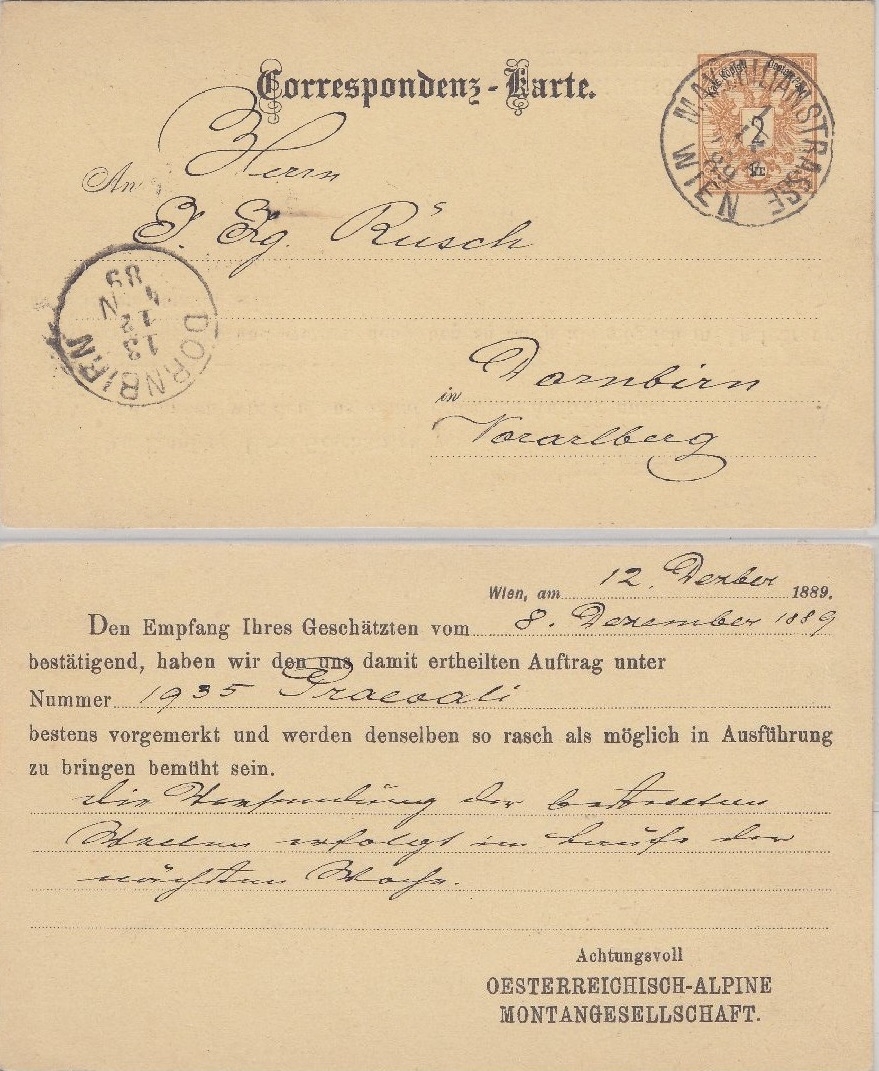 Correspondenz-Karte.
MAXIMILIANSTRASSE
WIEN
2
An Herrn
I. Ig. Rüsch
DORNBIRN
13
12
4 N
89
in Dornbirn
Vorarlberg
Wien, am 12. Dezber 1889.
Den Empfang Ihres Geschätzten vom 8. Dezember 1889
bestätigend, haben wir den uns damit ertheilten Auftrag unter
Nummer 1935 Praevali
bestens vorgemerkt und werden denselben so rasch als möglich in Ausführung
zu bringen bemüht sein.
die Versendung der bestellten
Wellen erfolgt im Laufe der
nächsten Woche.
Achtungsvoll
OESTERREICHISCH-ALPINE
MONTANGESELLSCHAFT.